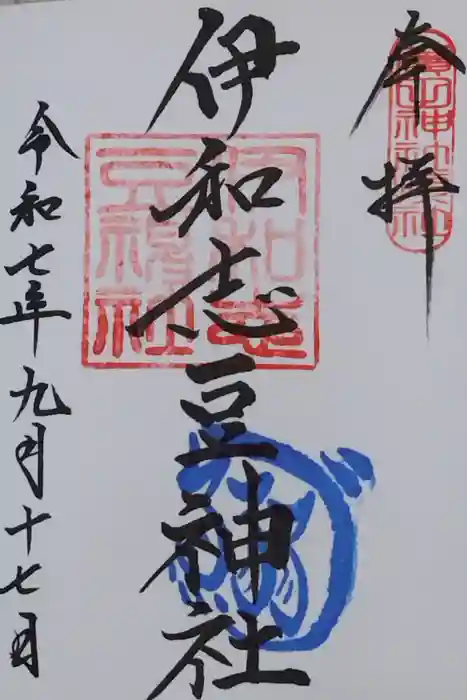 奉拝
伊和志豆神社
伊和志豆神社
令和七年九月十七日